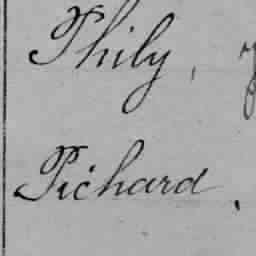 Phily,
Pichard,